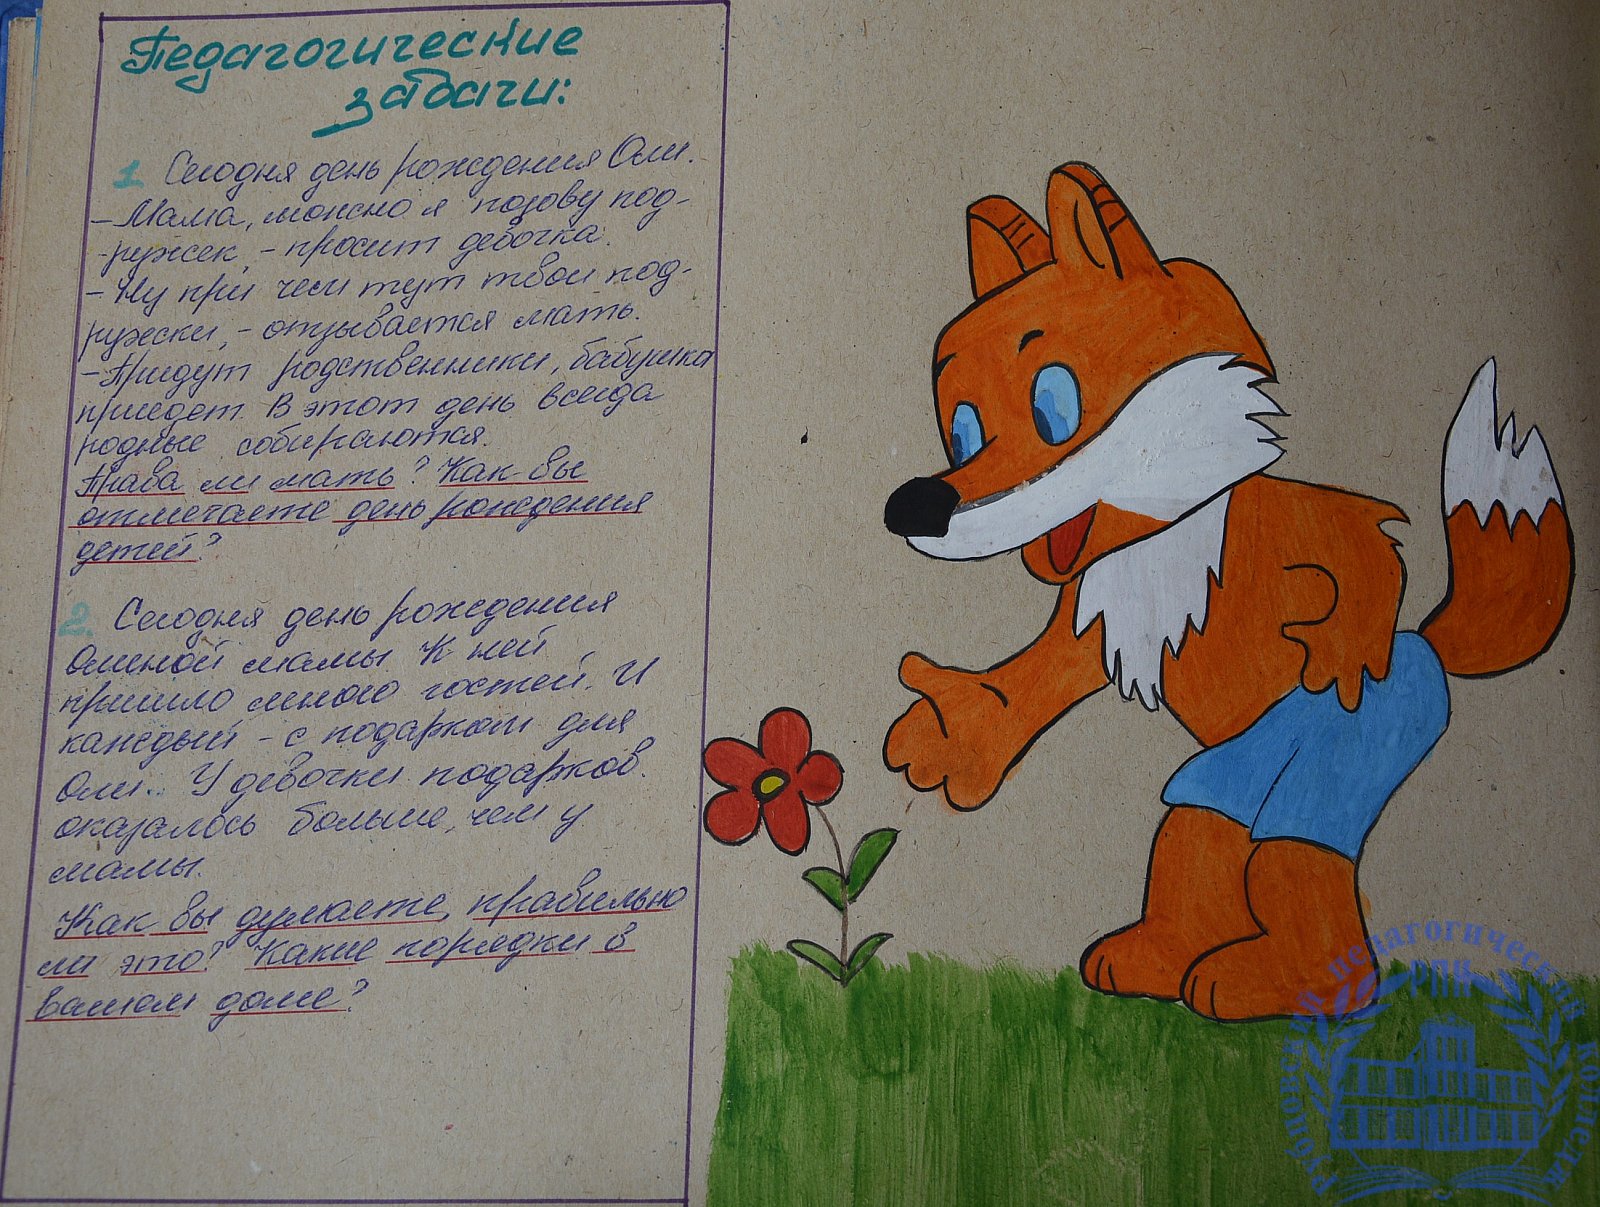 Педагогические
задачи:
1. Сегодня день рождения Оли.
- Мама, можно я позову под-
-ружек, - просит девочка.
- Ну при чем тут твои под-
ружки, - отзывается мать.
- Придут родственники, бабушка
приедет. В этот день всегда
родные собираются.
Права ли мать? Как вы
отмечаете день рождения
детей?
2. Сегодня день рождения
Олиной мамы. К ней
пришло много гостей. И
каждый - с подарком для
Оли.. У девочки подарков
оказалось больше, чем у
мамы.
Как вы думаете, правильно
ли это? Какие порядки в
вашем доме?
Рубцовский педагогический колледж
РПК